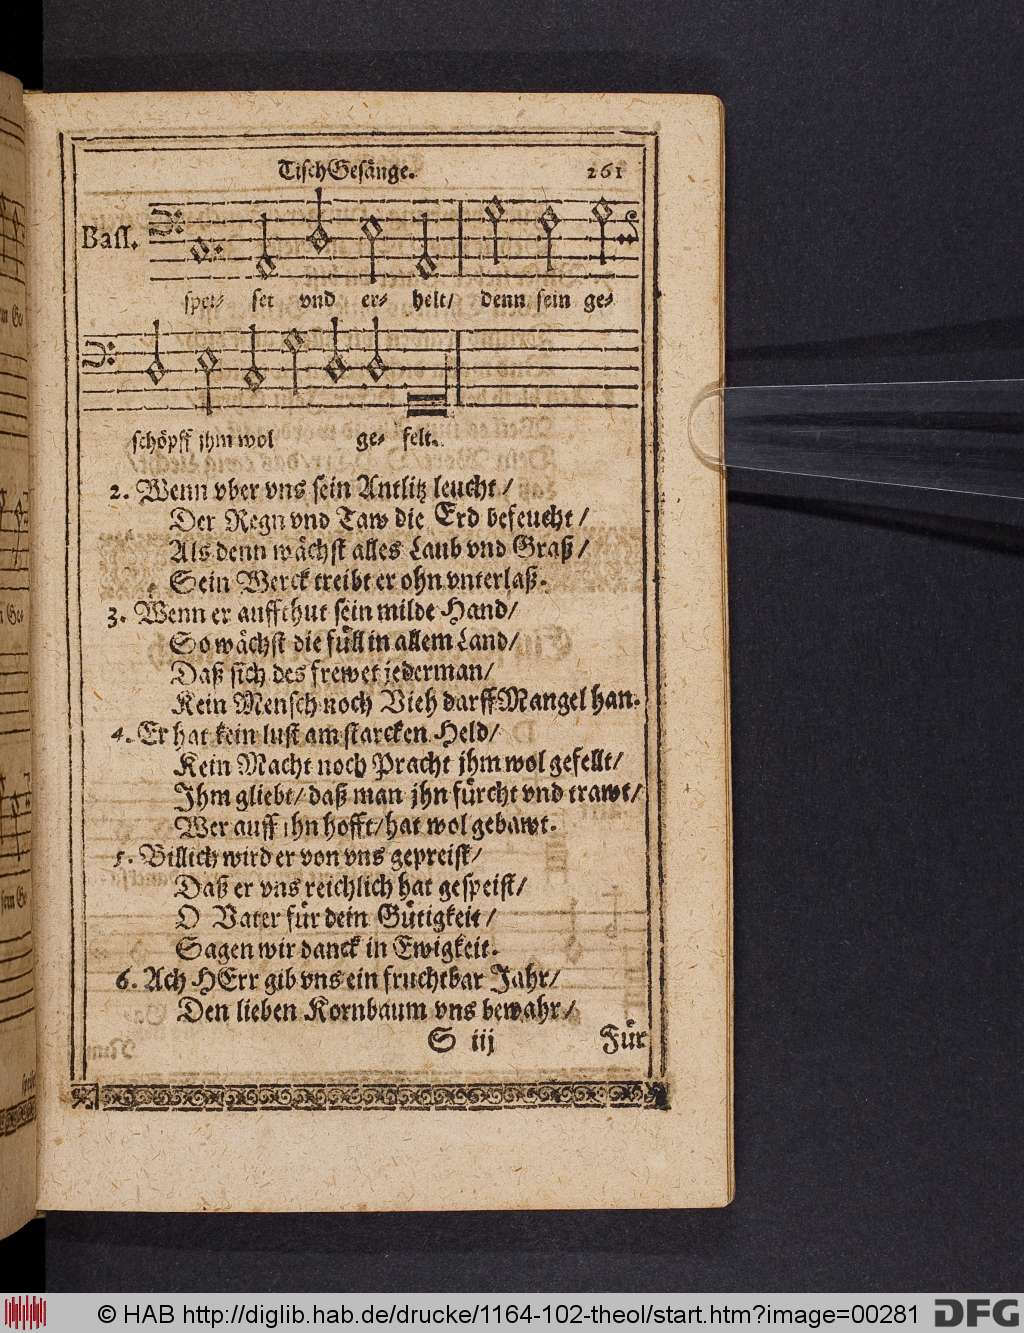 TischGesänge. 261
Bass.
spei- set vnd er- helt/ denn sein ge-
schöpff jhm wol ge- felt.
2. Wenn vber vns sein Antlitz leucht /
Der Regn vnd Taw die Erd befeucht /
Als denn wächst alles Laub vnd Graß /
Sein Werck treibt er ohn vnterlaß.
3. Wenn er auffthut sein milde Hand/
So wächst die füll in allem Land/
Daß sich des frewet jederman/
Kein Mensch noch Vieh darff Mangel han.
4. Er hat kein lust am starcken Held/
Kein Macht noch Pracht jhm wol gefellt/
Ihm gliebt/ daß man jhn fürcht vnd trawt/
Wer auff ihn hofft/ hat wol gebawt.
5. Billich wird er von vns gepreist/
Daß er vns reichlich hat gespeist/
O Vater für dein Gütigkeit /
Sagen wir danck in Ewigkeit.
6. Ach HErr gib vns ein fruchtbar Jahr/
Den lieben Kornbaum vns bewahr/
S iij Für
© HAB http://diglib.hab.de/drucke/1164-102-theol/start.htm?image=00281 DFG